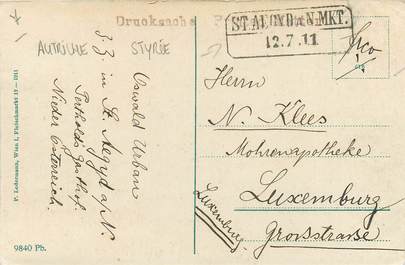 Drucksache
AUTRICHE STYRIE
ST. AEGYD a. N. MKT.
12.7.11
Oswald Urban
z. Z. in St. Aegyd a/N.
Pertholds Gasthof
Nieder Österreich.
P. Ledermann, Wien I, Fleischmarkt 12 — 1911
9840 Ph.
Herrn
N. Klees
Mohrenapotheke
Luxemburg
Grossstrasse
(Luxemburg)